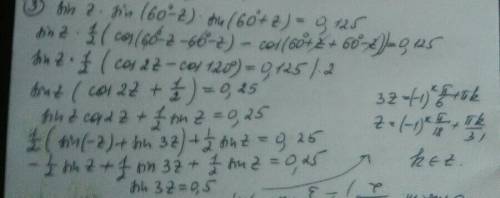 ③ sin z · sin(60°-z) · sin(60°+z) = 0,125
sin z · 1/2 (cos(60°-z-60°-z) - cos(60°+z+60°-z)) = 0,125
sin z · 1/2 (cos 2z - cos 120°) = 0,125 /·2
sin z (cos 2z + 1/2) = 0,25
sin z cos 2z + 1/2 sin z = 0,25
1/2 (sin(-z) + sin 3z) + 1/2 sin z = 0,25
-1/2 sin z + 1/2 sin 3z + 1/2 sin z = 0,25
sin 3z = 0,5
3z = (-1)^k π/6 + πk
z = (-1)^k π/18 + πk/3,
k ∈ z.